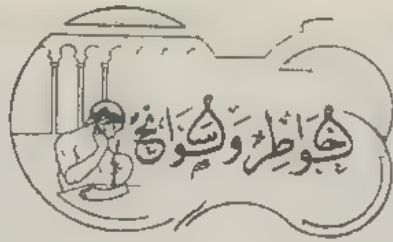 خَوَاطِرْ وَسَوَانِحْ